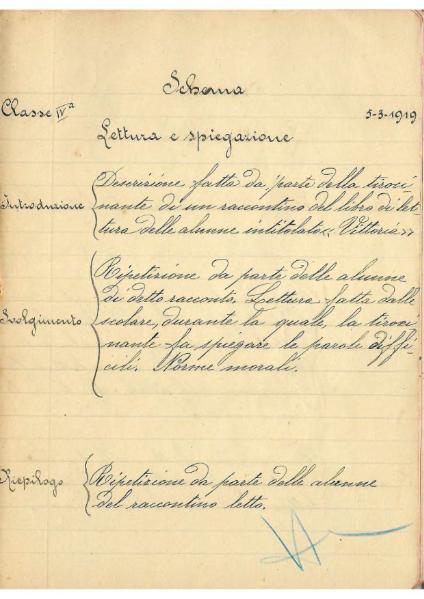 Schema
Classe IVª
5-3-1919
Lettura e spiegazione
Introduzione
Descrizione fatta da parte della tiroci-
nante di un raccontino del libro di let-
tura delle alunne intitolato « Vittoria »
Svolgimento
Ripetizione da parte delle alunne
di detto racconto. Lettura fatta dalle
scolare, durante la quale, la tiroci
nante fa spiegare le parole diffi-
cili. Norme morali.
Riepilogo
Ripetizione da parte delle alunne
del raccontino letto.